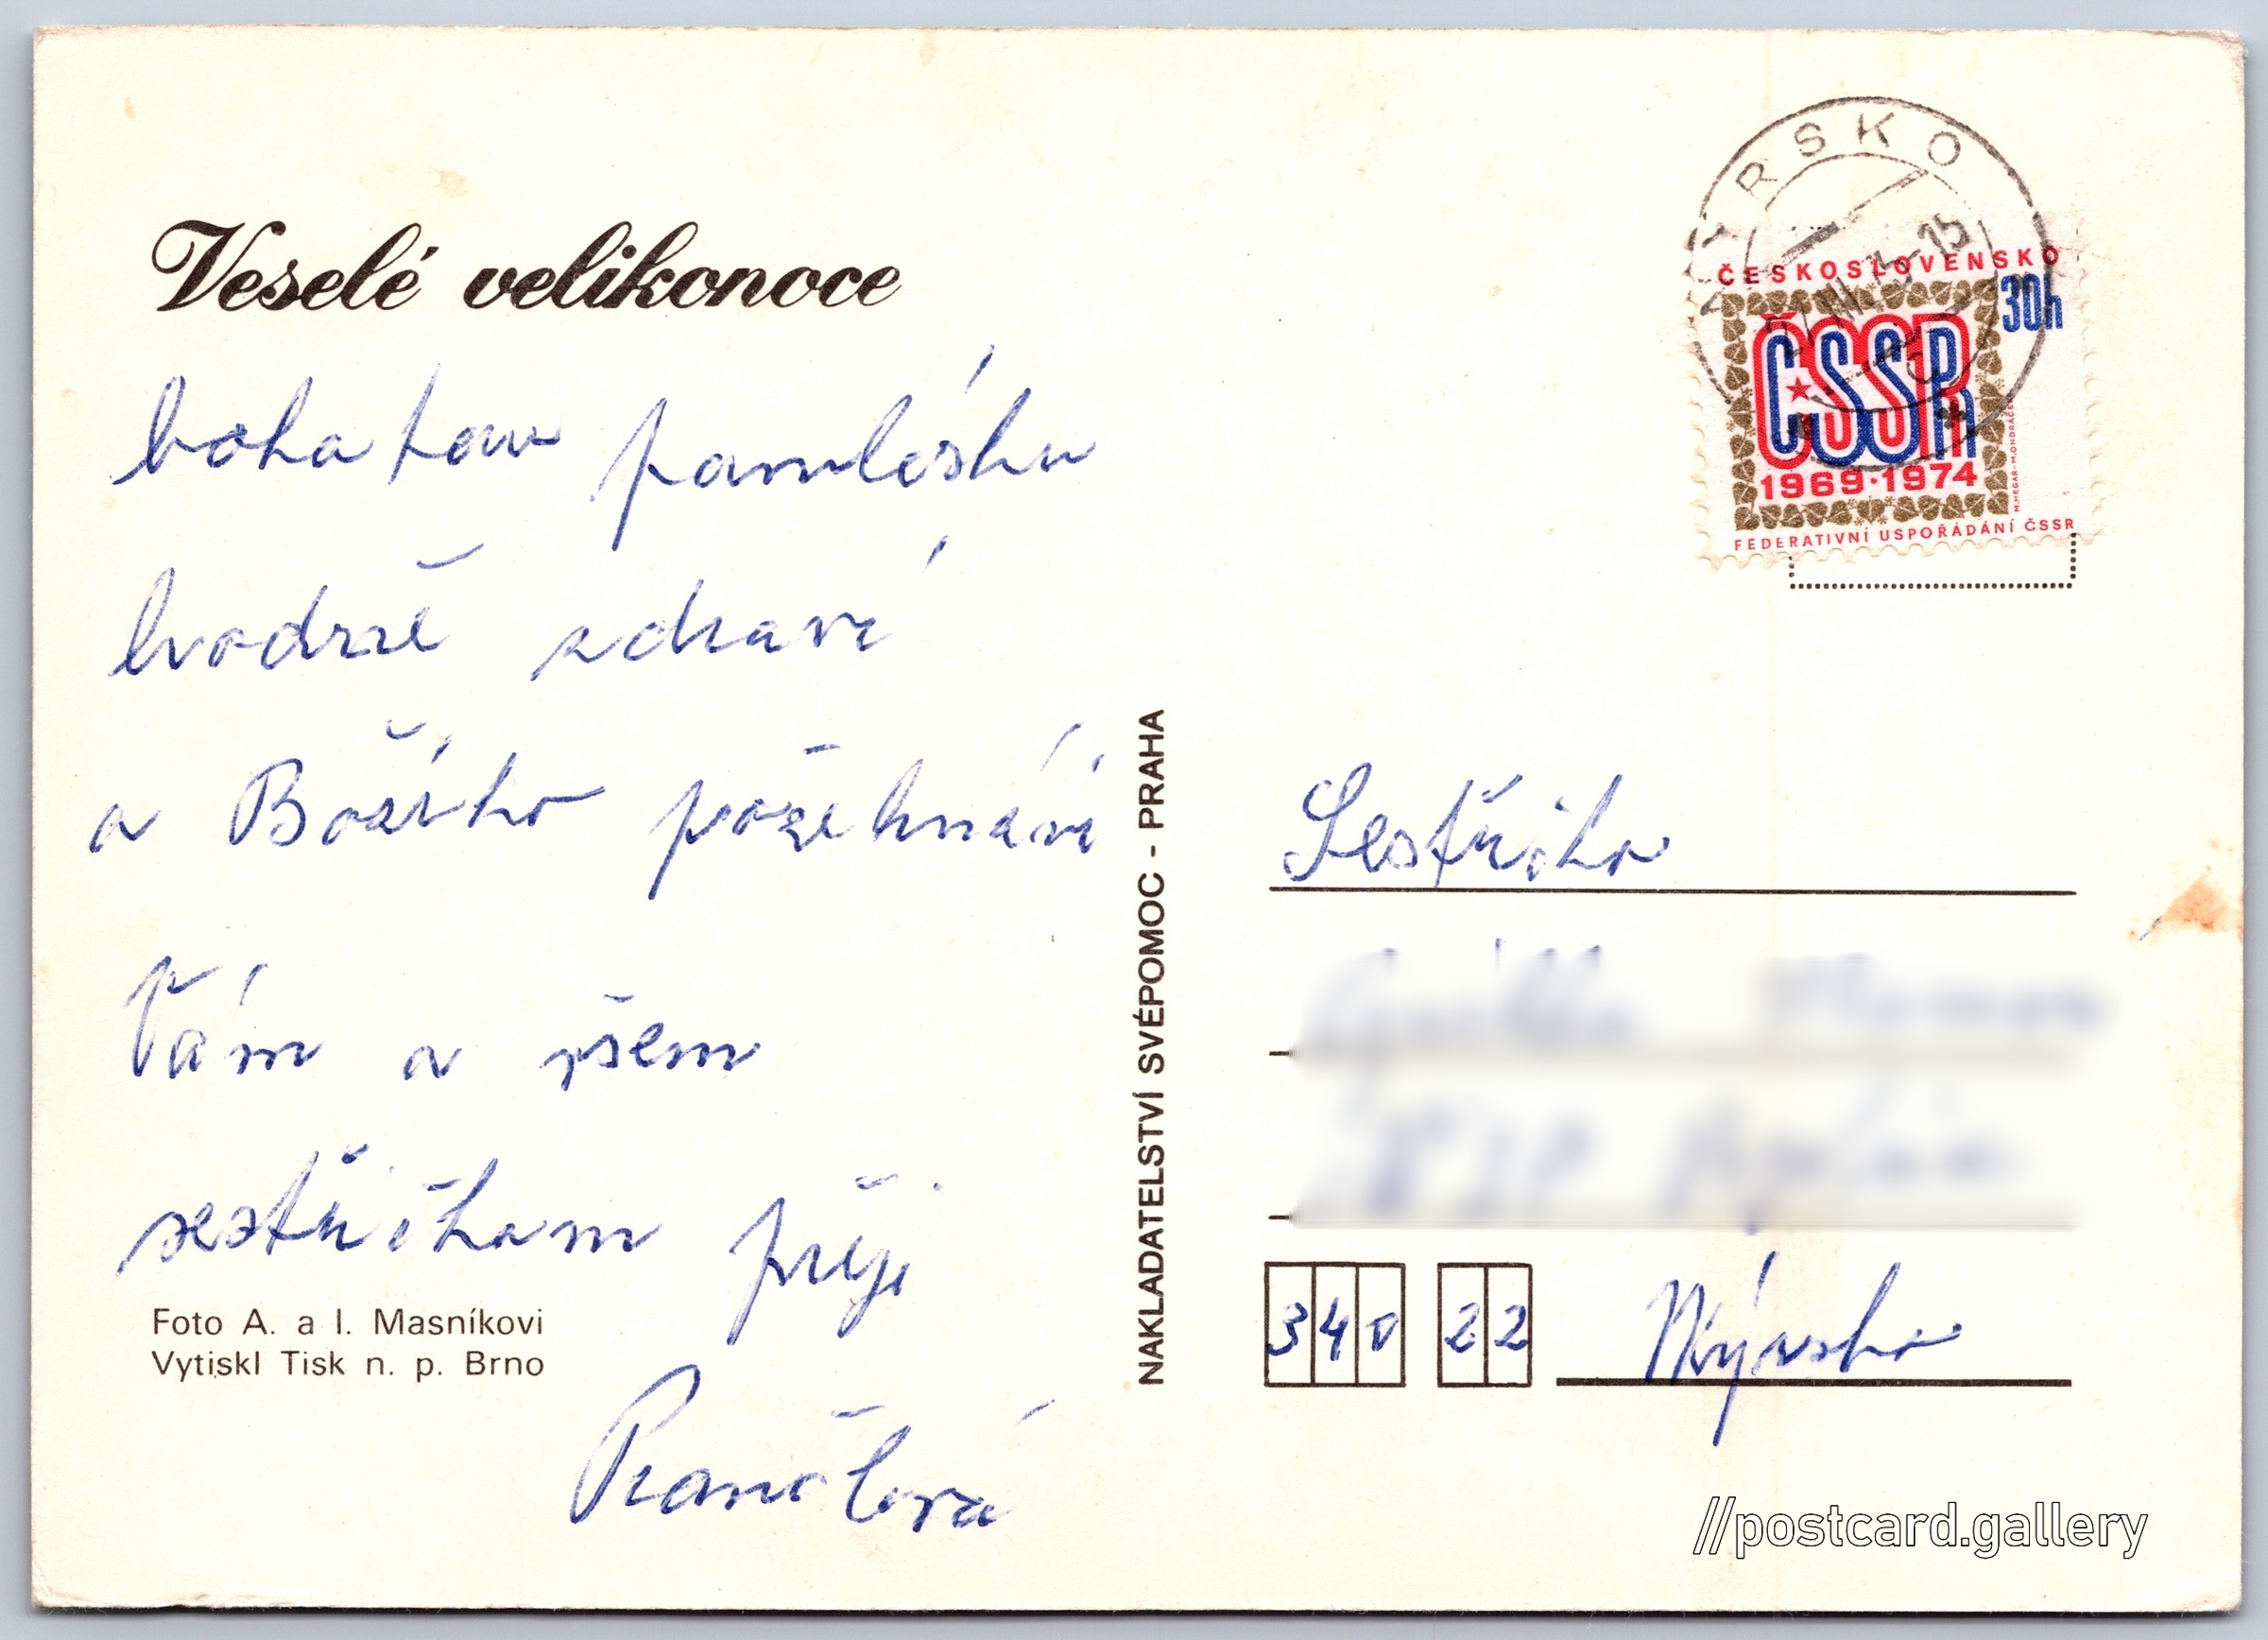 Veselé velikonoce
bohatou pomlázku
hodně zdraví
a Božího požehnání
Vám a všem
sestřičkám přeji
Foto A. a I. Masníkovi
Vytiskl Tisk n. p. Brno
NAKLADATELSTVÍ SVÉPOMOC - PRAHA
NÝRSKO
ČESKOSLOVENSKO
30h
ČSSR
1969·1974
FEDERATIVNÍ USPOŘÁDÁNÍ ČSSR
Sestřička
340 22 Nýrsko
//postcard.gallery